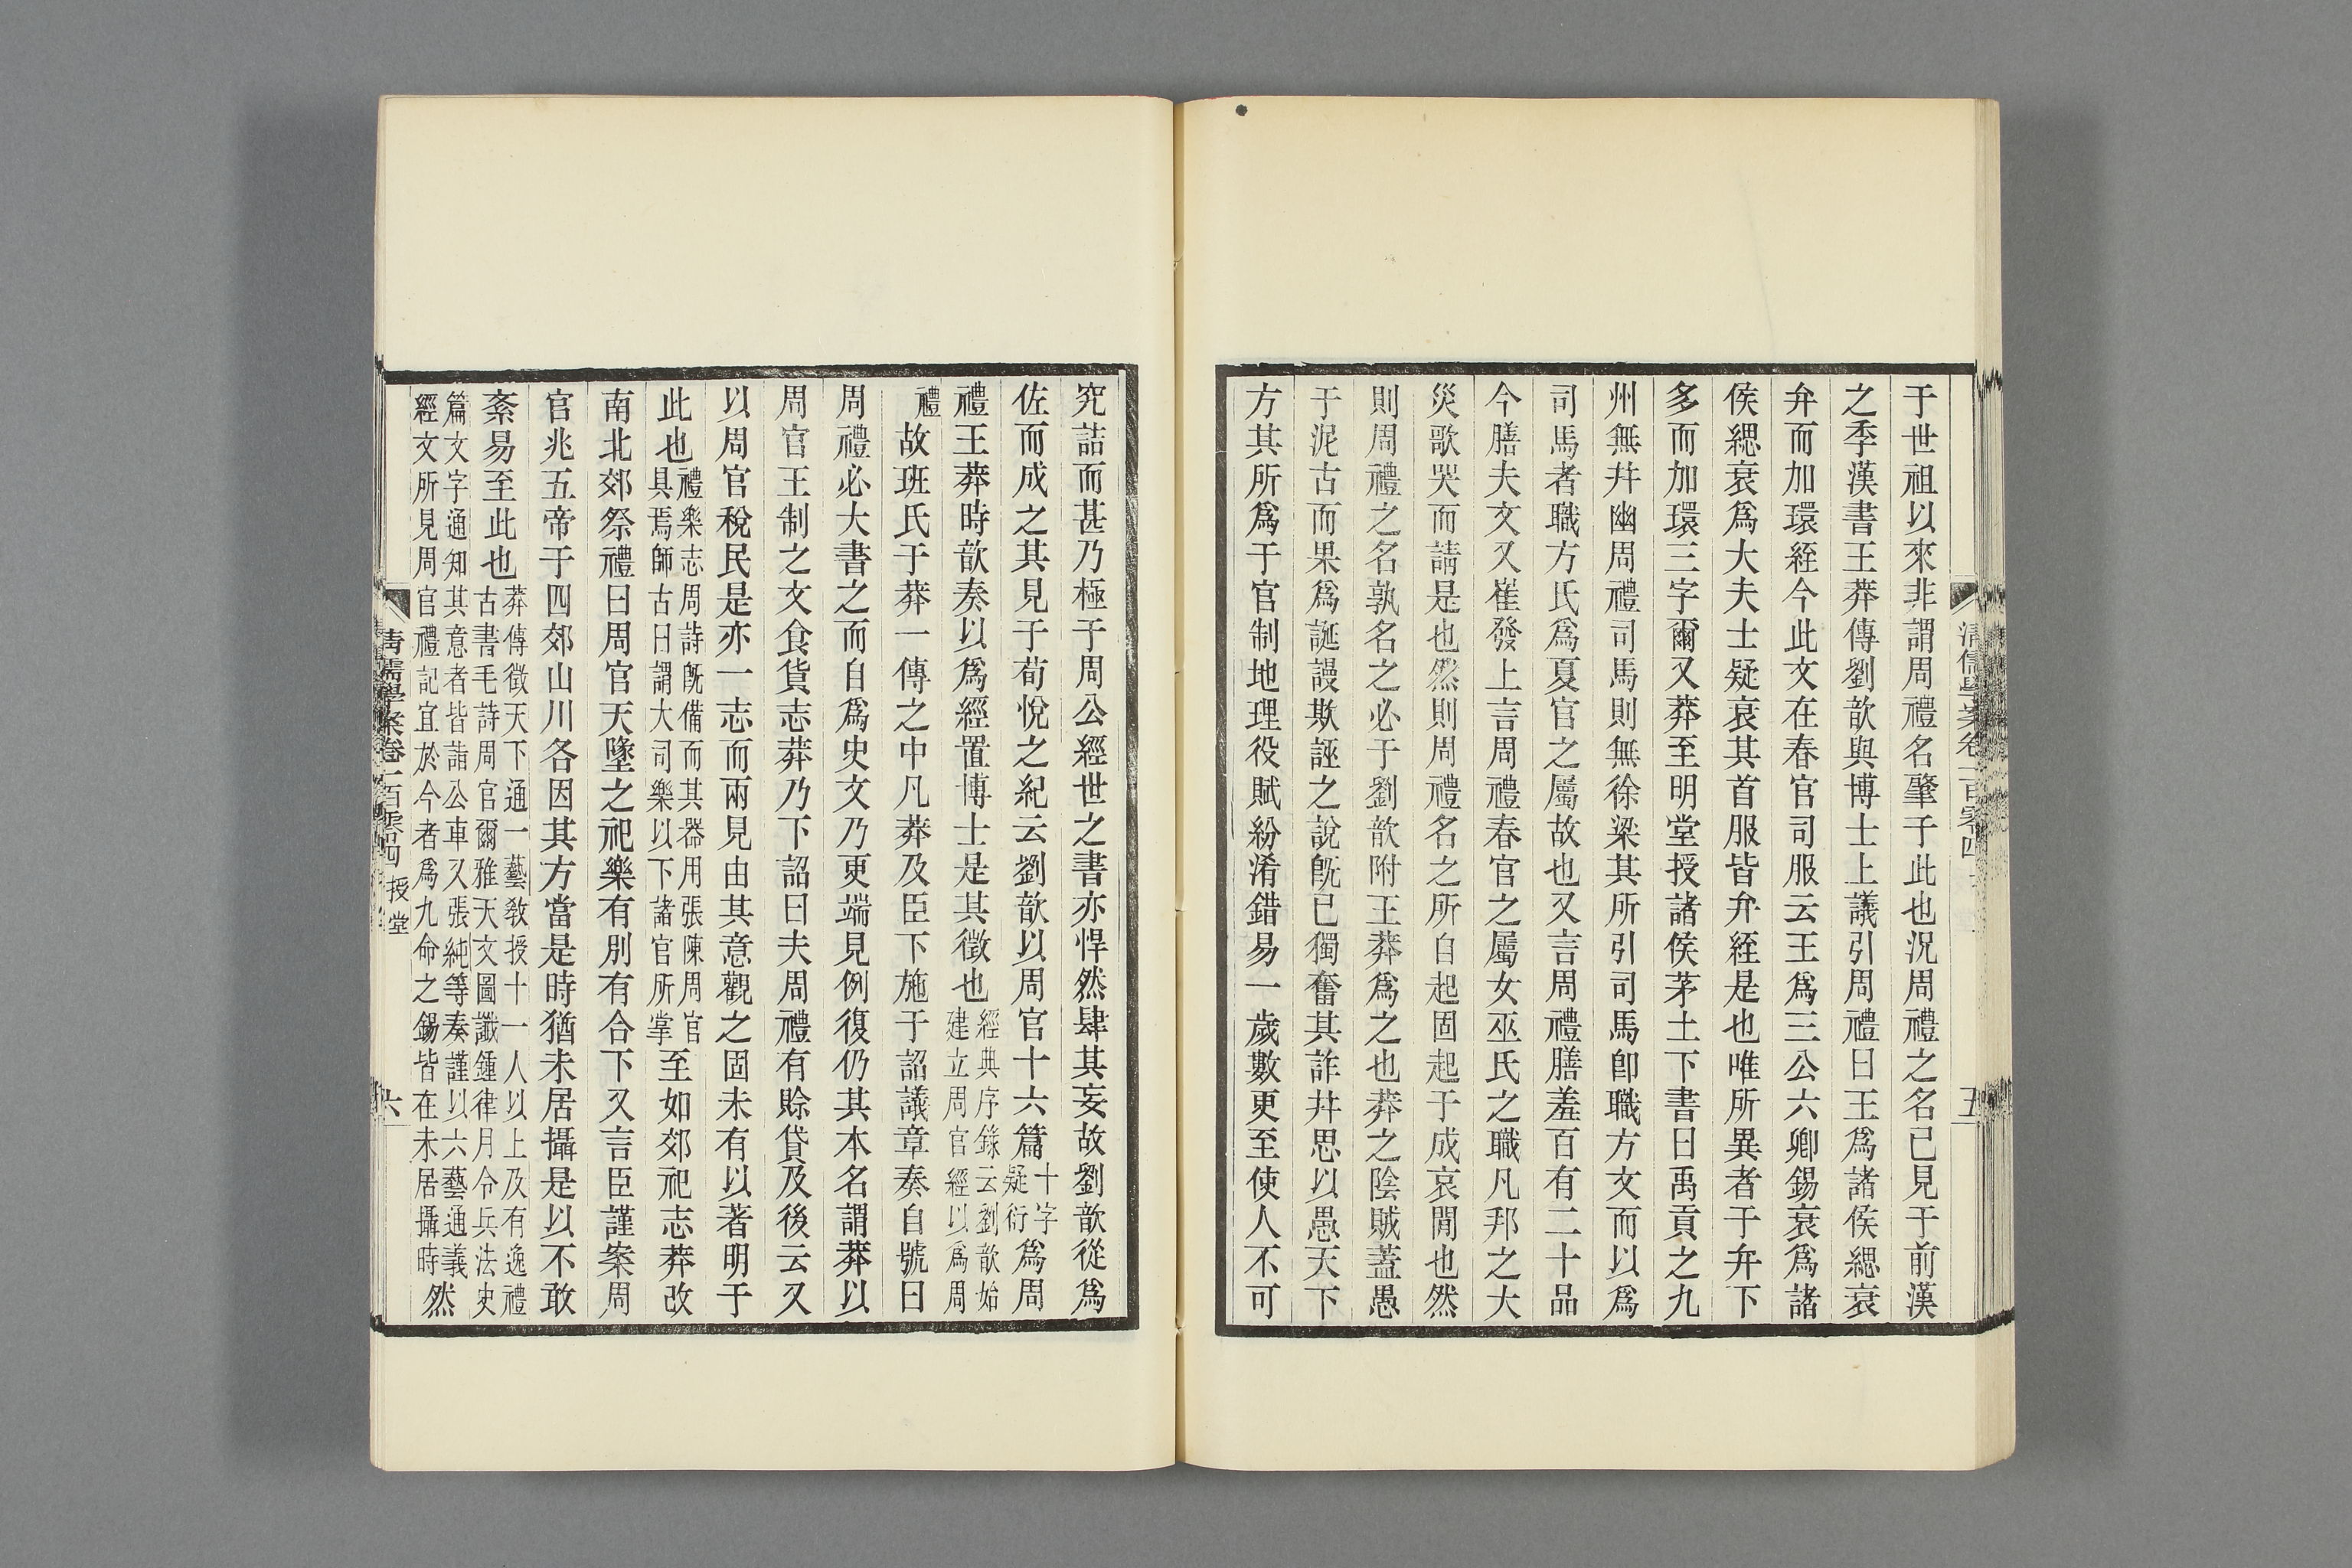 于世祖以來非謂周禮名肇于此也況周禮之名已見于前漢
之季漢書王莽傳劉歆與博士上議引周禮曰王爲諸侯緦衰
弁而加環絰今此文在春官司服云王爲三公六卿錫衰爲諸
侯緦衰爲大夫士疑衰其首服皆弁絰是也唯所異者于弁下
多而加環三字爾又莽至明堂授諸侯茅土下書曰禹貢之九
州無幷幽周禮司馬則無徐梁其所引司馬卽職方文而以爲
司馬者職方氏爲夏官之屬故也又言周禮膳羞百有二十品
今膳夫文又崔發上言周禮春官之屬女巫氏之職凡邦之大
烖歌哭而請是也然則周禮名之所自起固起于成哀閒也然
則周禮之名孰名之必于劉歆附王莽爲之也莽之陰賊蓋愚
于泥古而果爲誕謾欺誣之說旣已獨奮其詐幷思以愚天下
方其所爲于官制地理役賦紛淆錯易一歲數更至使人不可
清儒學案卷一百零四
五
究詰而甚乃極于周公經世之書亦悍然肆其妄故劉歆從爲
佐而成之其見于荀悅之紀云劉歆以周官十六篇十字疑衍爲周
禮王莽時歆奏以爲經置博士是其徵也經典序錄云劉歆始建立周官經以爲周
禮故班氏于莽一傳之中凡莽及臣下施于詔議章奏自號曰
周禮必大書之而自爲史文乃更端見例復仍其本名謂莽以
周官王制之文食貨志莽乃下詔曰夫周禮有賒貸及後云又
以周官稅民是亦一志而兩見由其意觀之固未有以著明于
此也禮樂志周詩旣備而其器用張陳周官具焉師古曰謂大司樂以下諸官所掌至如郊祀志莽改
南北郊祭禮曰周官天墬之祀樂有別有合下又言臣謹案周
官兆五帝于四郊山川各因其方當是時猶未居攝是以不敢
紊易至此也莽傳徵天下通一藝敎授十一人以上及有逸禮古書毛詩周官爾雅天文圖讖鍾律月令兵法史
篇文字通知其意者皆詣公車又張純等奏謹以六藝通義經文所見周官禮記宜於今者爲九命之錫皆在未居攝時然
清儒學案卷一百零四 授堂
六